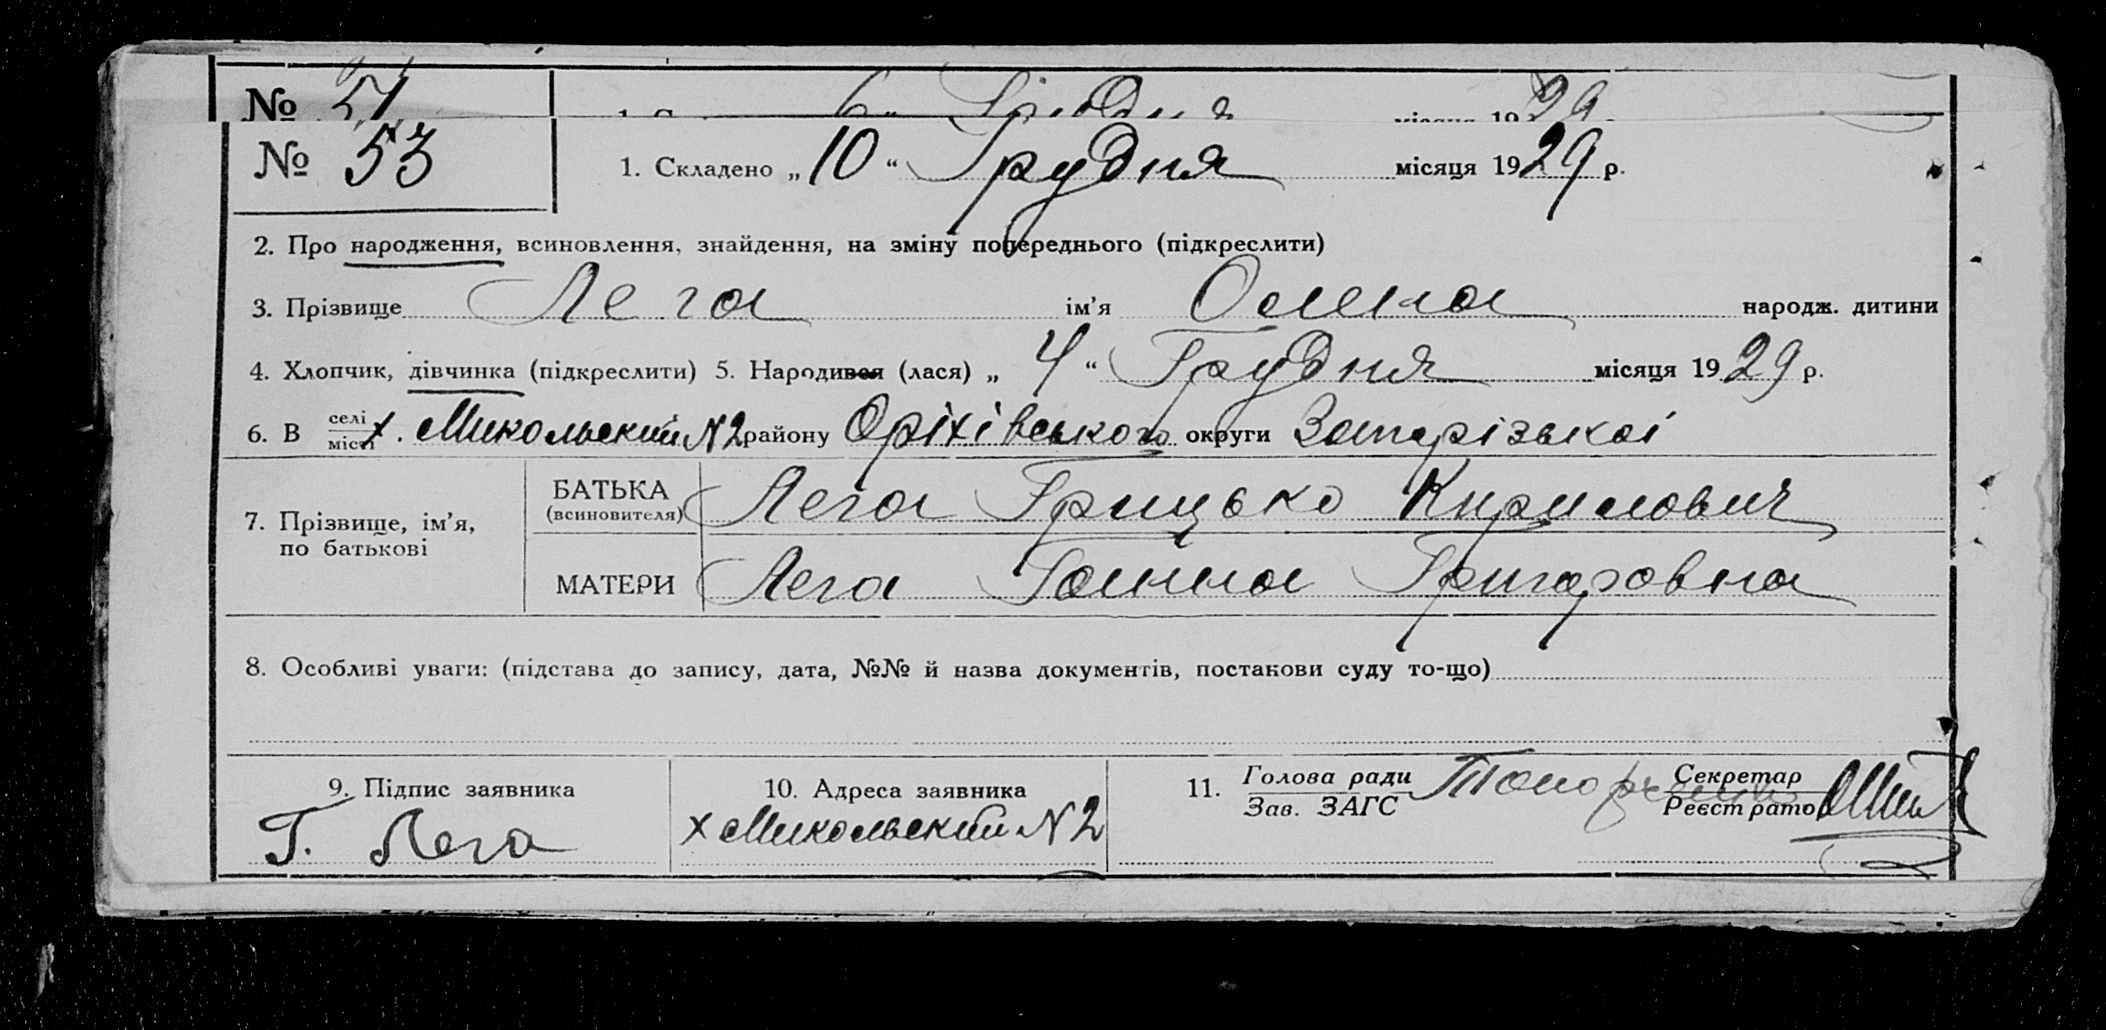 № 51 6 “ Грудня місяця 1929
№ 53 1. Складено „ 10 “ Грудня місяця 1929 р.
2. Про народження, всиновлення, знайдення, на зміну попереднього (підкреслити)
3. Прізвище Лега ім’я Олена народж. дитини
4. Хлопчик, дівчинка (підкреслити) 5. Народився (лася) „ 4 “ Грудня місяця 1929 р.
6. В селі місті х. Микольский N2 району Оріхівського округи Запорізької
7. Прізвище, ім’я, по батькові
БАТЬКА (всиновителя) Лега Грицько Кирилович
МАТЕРИ Лега Ганна Григоровна
8. Особливі уваги: (підстава до запису, дата, №№ й назва документів, постанови суду то-що)
9. Підпис заявника 10. Адреса заявника 11. Голова ради Секретар
Зав. ЗАГС Реєстратор
Г. Лега х Микольский N2